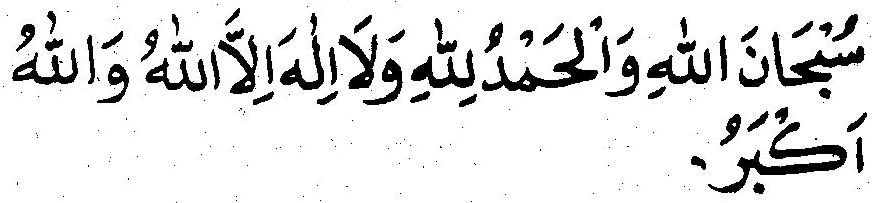 سُبْحَانَ اللهِ وَالْحَمْدُ لِلّٰهِ وَلَا اِلٰهَ اِلَّا اللهُ وَاللهُ
اَكْبَرُ.